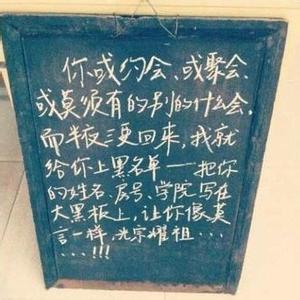 你或约会、或聚会、
或莫须有的别的什么会,
而半夜三更回来,我就
给你上黑名单——把你
的姓名、房号、学院写在
大黑板上,让你像莫
言一样,光宗耀祖...
......!!!